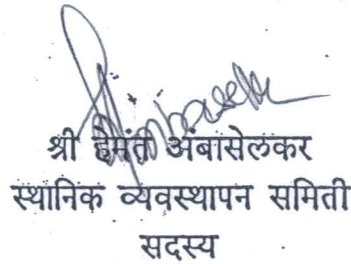 श्री हेमंत अंबासेलकर
स्थानिक व्यवस्थापन समिती
सदस्य